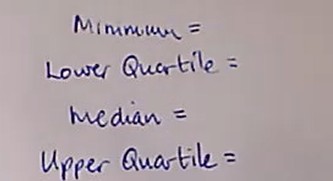 Minimum =
Lower Quartile =
Median =
Upper Quartile =